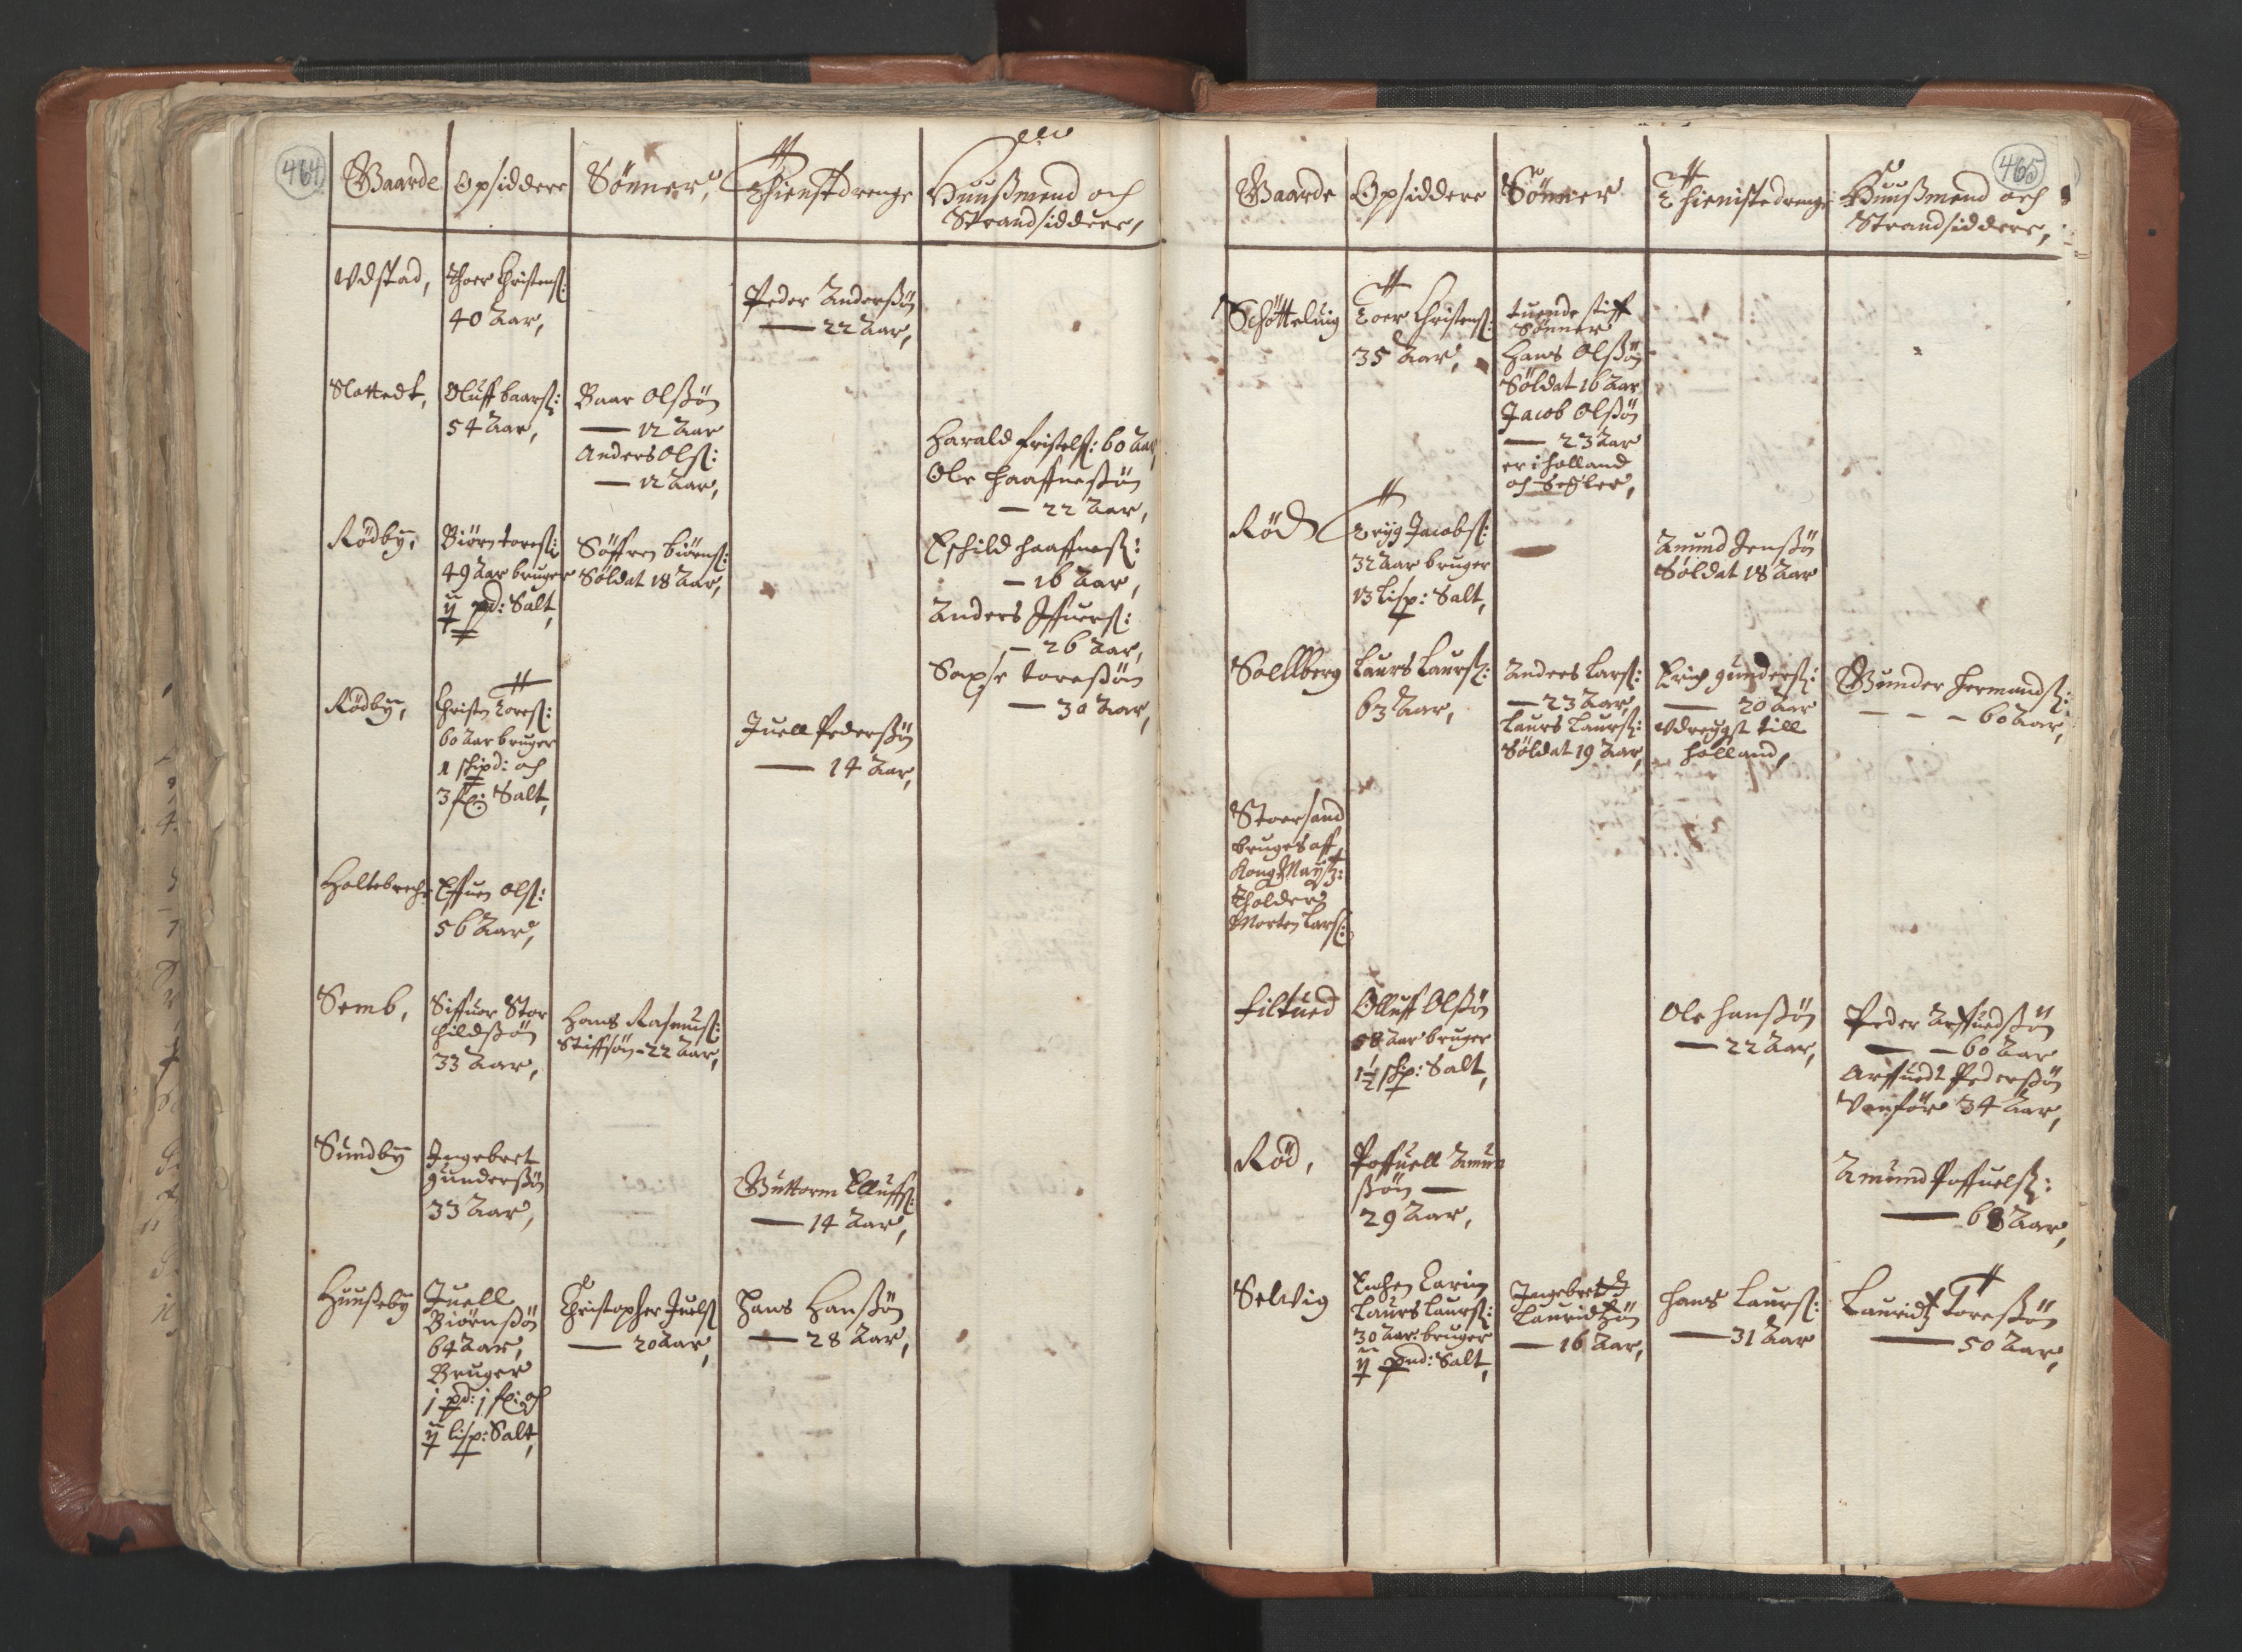 464
Gaarde Opsiddere Sönner, Thienstedrenge Huusmend och
Strandsiddere,
Vdstad, Thoer Christens:
40 Aar,
Peder Anderssön
— 22 Aar,
Slottedt, Oluff baars:
54 Aar,
Baar Olssön
— 12 Aar
Anders Ols:
— 12 Aar,
Harald kristels: 60 Aar,
Ole haaffnessön
— 22 Aar,
Rödby, Biörn tores:
49 Aar bruger
ij pd: Salt,
Söffren biörns:
Söldat 18 Aar,
Eschild haaffnes:
— 16 Aar,
Anders Iffuers:
— 26 Aar,
toressön
— 30 Aar,
Rödby, Christen Tores:
60 Aar bruger
1 schipd: och
3 Salt,
Juell Pederssön
— 14 Aar,
Holtebrech: Effuen Ols:
56 Aar,
Semb, Siffuer Stor
childssön
33 Aar,
Hans Rasmus:
Stiffsön - 22 Aar,
Sundby Ingebret
gunderssön
33 Aar,
Guttorm Elluffs:
— 14 Aar,
Huuseby Juell
Biörnssön
64 Aar,
Bruger
j pd: j och
ij lisp: Salt,
Christopher Juels
— 20 Aar,
Hans Hanssön
— 28 Aar,
465
Gaarde Opsiddere Sönner Thienistedrenge Huusmend och
Strandsiddere,
Schötteluig Toer Christens:
35 Aar,
tuende stiff
Sönner
Hans Olssön
Söldat 16 Aar
Jacob Olssön
— 23 Aar
er i holland
och segler,
Röd Tryg Jacobs:
32 Aar bruger
13 lisp: Salt,
Amund Jenssön
Söldat 18 Aar
Sollberg Laurs Laurs:
63 Aar,
Anders Lars:
— 23 Aar,
Laurs Laurs:
Söldat 19 Aar,
Erich gunders:
— 20 Aar
vdreygst till
holland,
Gunder Hermands:
— — — 60 Aar,
Stoersand
bruges aff
Kong May:
Tholder
Morten Lars:
filtued Olluff Olssön
58 Aar bruger
1½ schp: Salt,
Ole hanssön
— 22 Aar,
Peder Arffuedssön
— — 60 Aar
Arffuedt Pederssön
Vanför 34 Aar,
Röd, Poffuell Amun
ssön —
29 Aar,
Amund Poffuels:
— 68 Aar,
Selvig Enchen Karin
Laurs Laurs:
30 Aar: bruger
ij pnd: Salt,
Ingebret
Lauridzön
— 16 Aar,
Hans Laurs:
— 31 Aar
Lauridz Toressön
— 50 Aar,